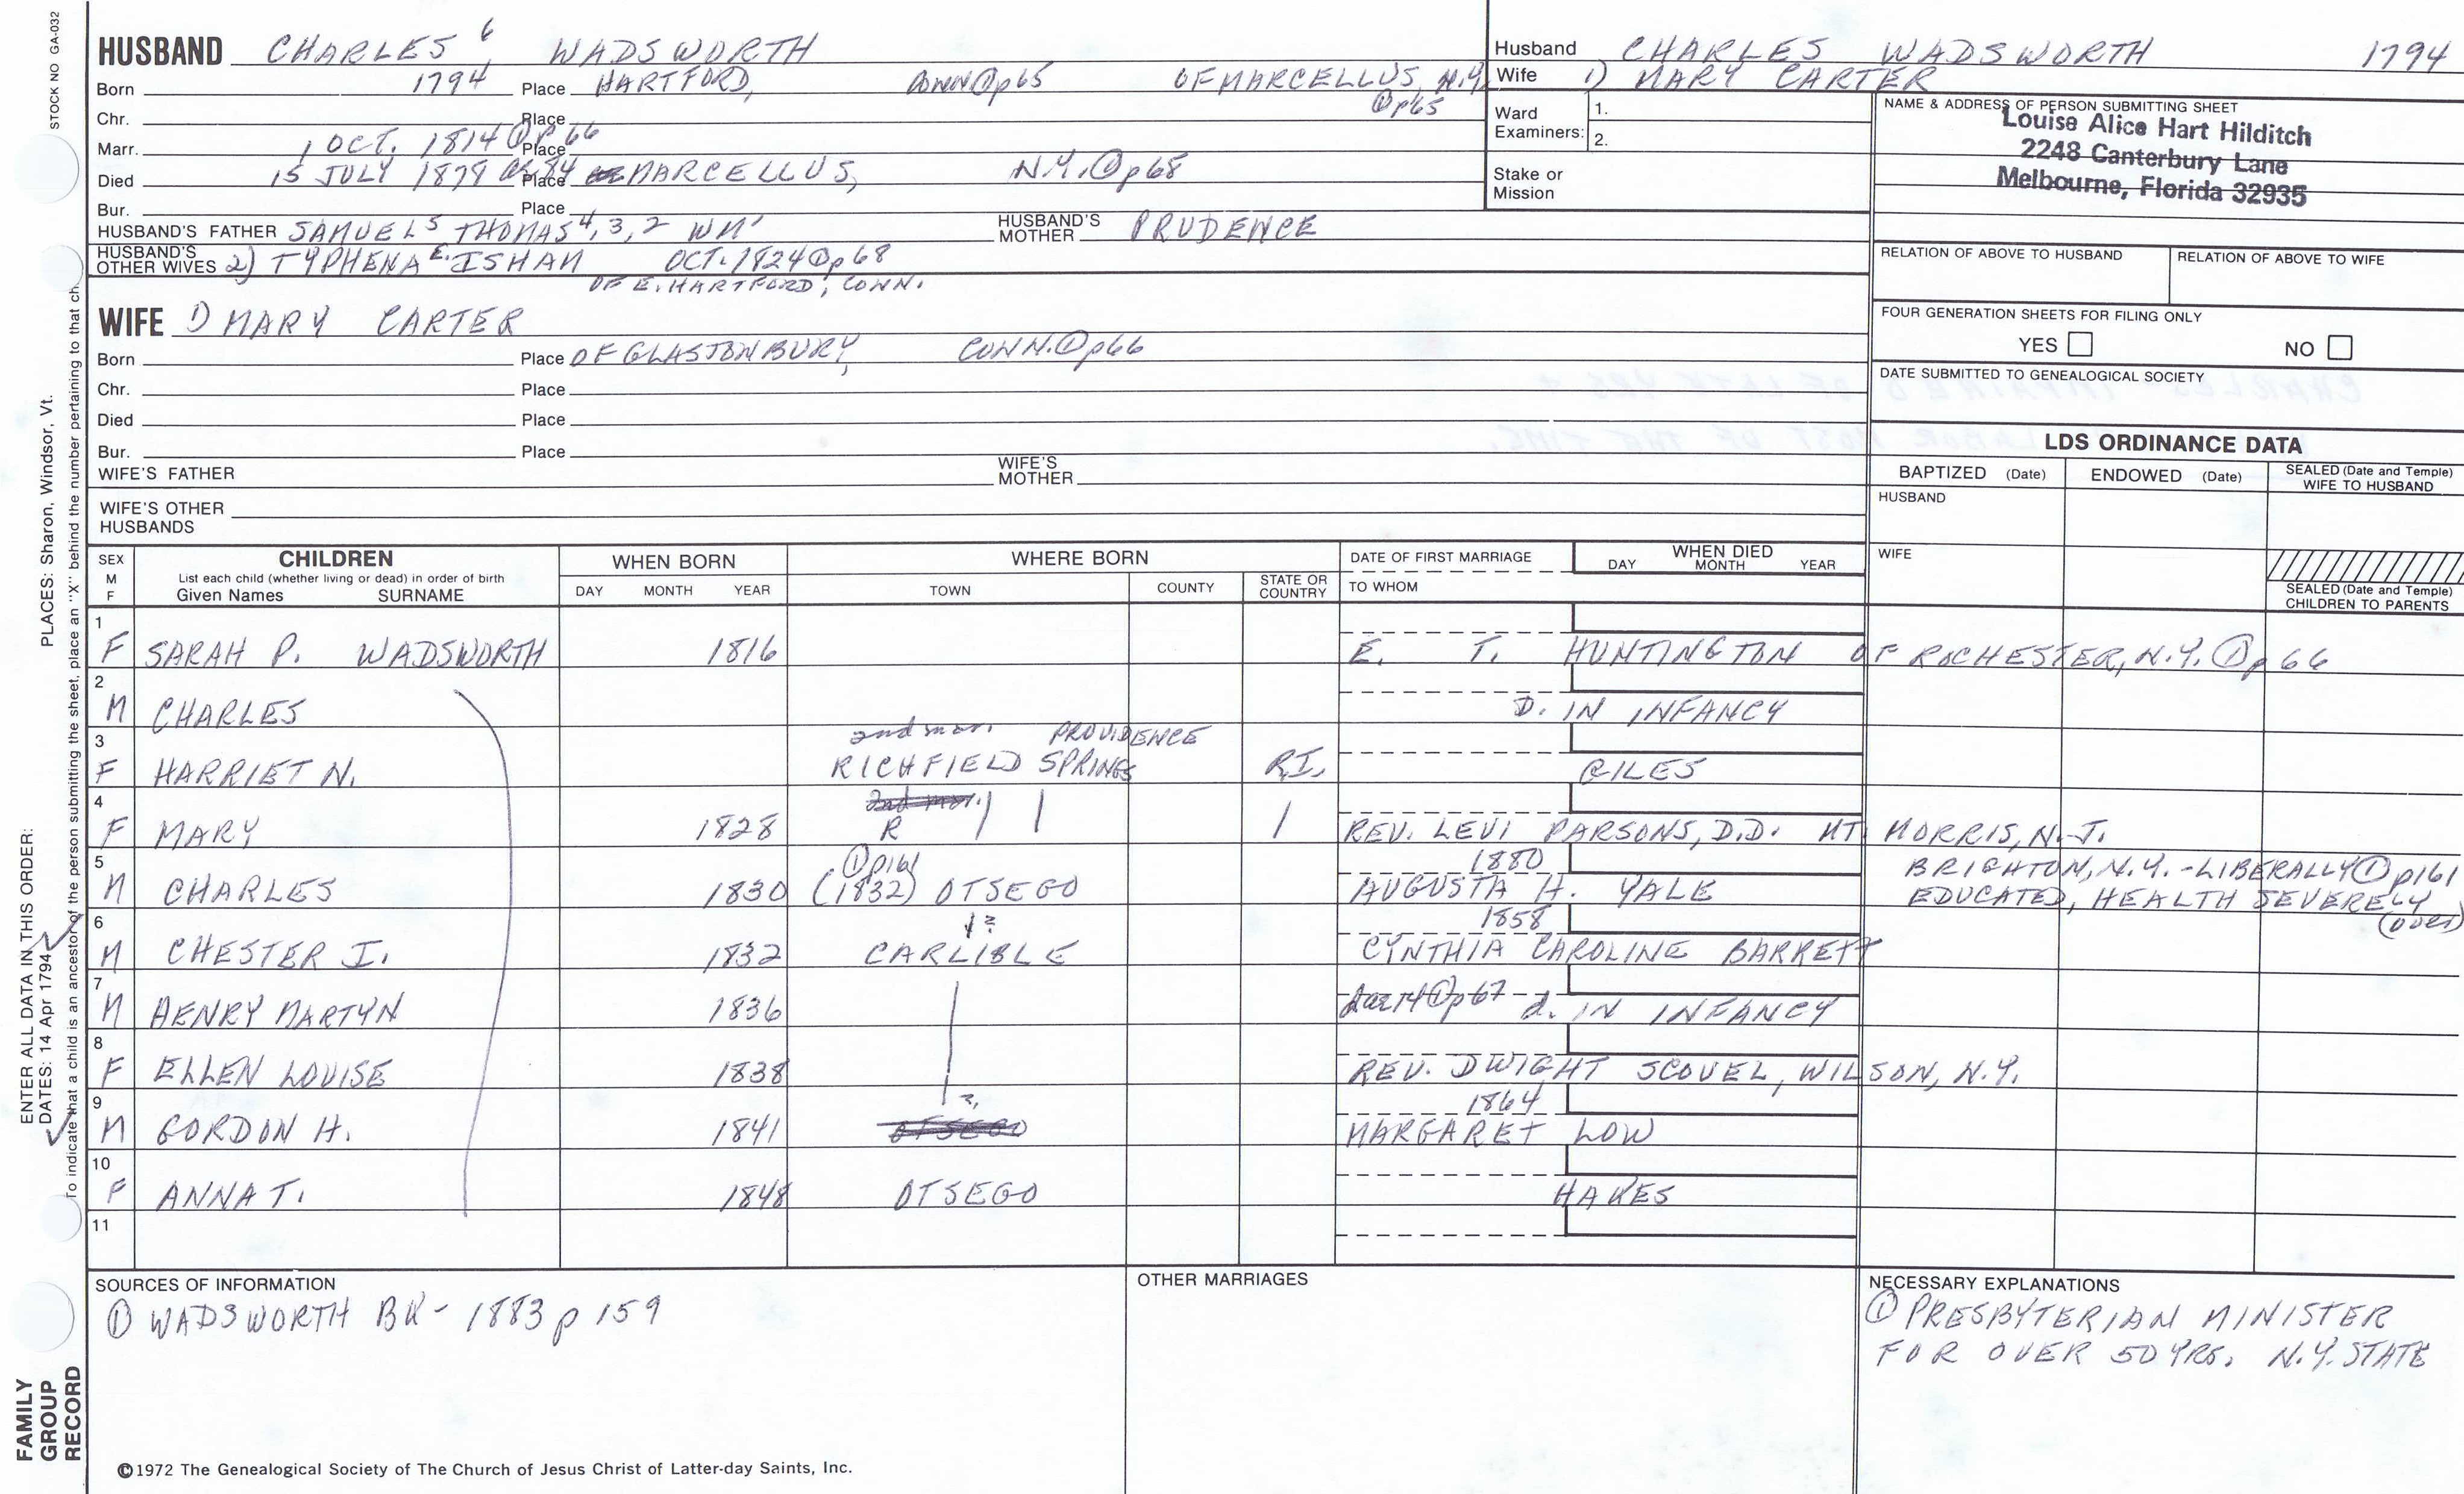 STOCK NO GA-032
HUSBAND CHARLES 6 WADSWORTH
Born 1794 Place HARTFORD, CONN ① p65 OF MARCELLUS, N.Y. ① p65
Chr. Place
Marr. 1 OCT. 1814 ① P 66 Place
Died 15 JULY 1879 or 84 Place MARCELLUS, N.Y. ① p68
Bur. Place
HUSBAND'S FATHER SAMUEL 5 THOMAS 4, 3, 2 WM' HUSBAND'S MOTHER PRUDENCE
HUSBAND'S OTHER WIVES 2) TYPHENA E. ISHAM OCT. 1824 ① p68
OF E. HARTFORD, CONN.
WIFE 1) MARY CARTER
Born Place OF GLASTONBURY, CONN. ① p66
Chr. Place
Died Place
Bur. Place
WIFE'S FATHER WIFE'S MOTHER
WIFE'S OTHER HUSBANDS
Husband CHARLES WADSWORTH 1794
Wife 1) MARY CARTER
Ward Examiners: 1. 2.
Stake or Mission
NAME & ADDRESS OF PERSON SUBMITTING SHEET
Louise Alice Hart Hilditch
2248 Canterbury Lane
Melbourne, Florida 32935
RELATION OF ABOVE TO HUSBAND RELATION OF ABOVE TO WIFE
FOUR GENERATION SHEETS FOR FILING ONLY
YES NO
DATE SUBMITTED TO GENEALOGICAL SOCIETY
LDS ORDINANCE DATA
BAPTIZED (Date) ENDOWED (Date) SEALED (Date and Temple) WIFE TO HUSBAND
HUSBAND
WIFE
SEALED (Date and Temple) CHILDREN TO PARENTS
SEX M F CHILDREN List each child (whether living or dead) in order of birth Given Names SURNAME
WHEN BORN DAY MONTH YEAR
WHERE BORN TOWN COUNTY STATE OR COUNTRY
DATE OF FIRST MARRIAGE TO WHOM
WHEN DIED DAY MONTH YEAR
1 F SARAH P. WADSWORTH 1816 E. T. HUNTINGTON OF ROCHESTER, N.Y. ① p 66
2 M CHARLES D. IN INFANCY
and mar. PROVIDENCE
3 F HARRIET N. RICHFIELD SPRINGS R.I. GILES
4 F MARY 1828 R REV. LEVI PARSONS, D.D. MT. MORRIS, N.J.
① p161 1880 BRIGHTON, N.Y. - LIBERALLY ① p161
5 M CHARLES 1830 (1832) OTSEGO AUGUSTA H. YALE EDUCATED, HEALTH SEVERELY
? 1858 (over)
6 M CHESTER I. 1832 CARLISLE CYNTHIA CAROLINE BARRETT
7 M HENRY MARTYN 1836 ① p67 d. IN INFANCY
8 F ELLEN LOUISE 1838 REV. DWIGHT SCOVEL, WILSON, N.Y.
? 1864
9 M GORDON H. 1841 OTSEGO MARGARET LOW
10 F ANNA T. 1848 OTSEGO HAKES
11
SOURCES OF INFORMATION
① WADSWORTH BK - 1883 p 159
OTHER MARRIAGES
NECESSARY EXPLANATIONS
① PRESBYTERIAN MINISTER
FOR OVER 50 YRS. N.Y. STATE
©1972 The Genealogical Society of The Church of Jesus Christ of Latter-day Saints, Inc.
FAMILY GROUP RECORD
ENTER ALL DATA IN THIS ORDER:
DATES: 14 Apr 1794
PLACES: Sharon, Windsor, Vt.
To indicate that a child is an ancestor of the person submitting the sheet, place an "X" behind the number pertaining to that ch